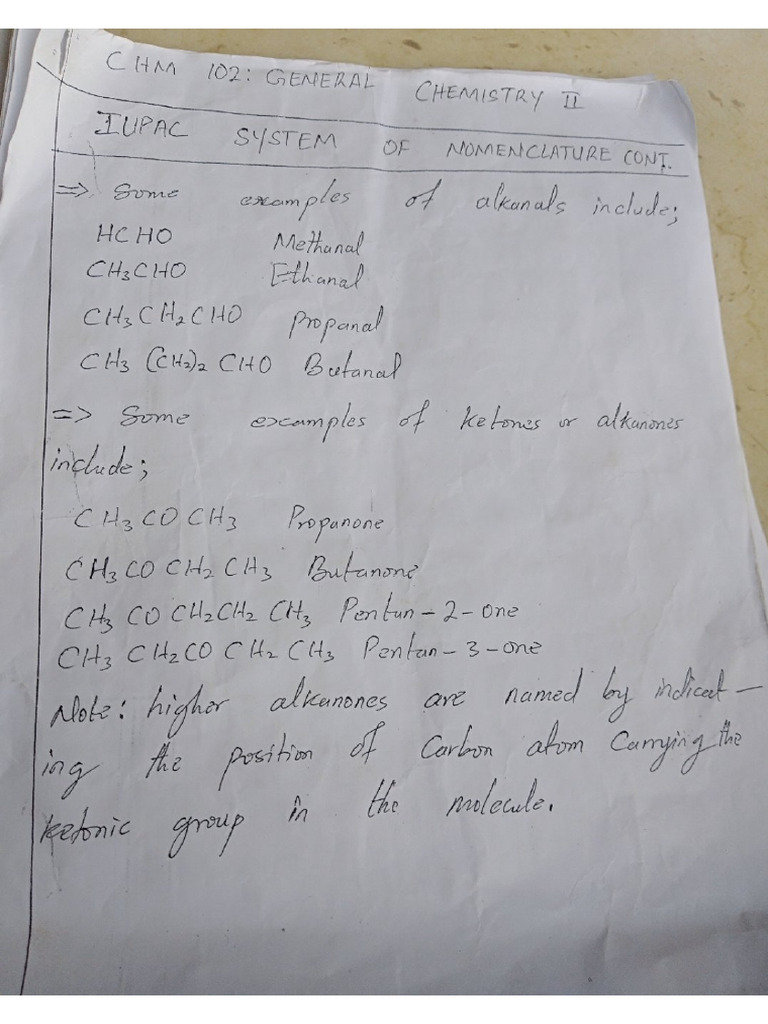 CHM 102: GENERAL CHEMISTRY II
IUPAC SYSTEM OF NOMENCLATURE CONT.
=> Some examples of alkanals include;
HCHO Methanal
CH3CHO Ethanal
CH3CH2CHO Propanal
CH3 (CH2)2 CHO Butanal
=> Some examples of ketones or alkanones
include;
CH3COCH3 Propanone
CH3COCH2CH3 Butanone
CH3COCH2CH2CH3 Pentan-2-one
CH3CH2COCH2CH3 Pentan-3-one
Note: higher alkanones are named by indicat-
ing the position of Carbon atom Carrying the
ketonic group in the molecule.